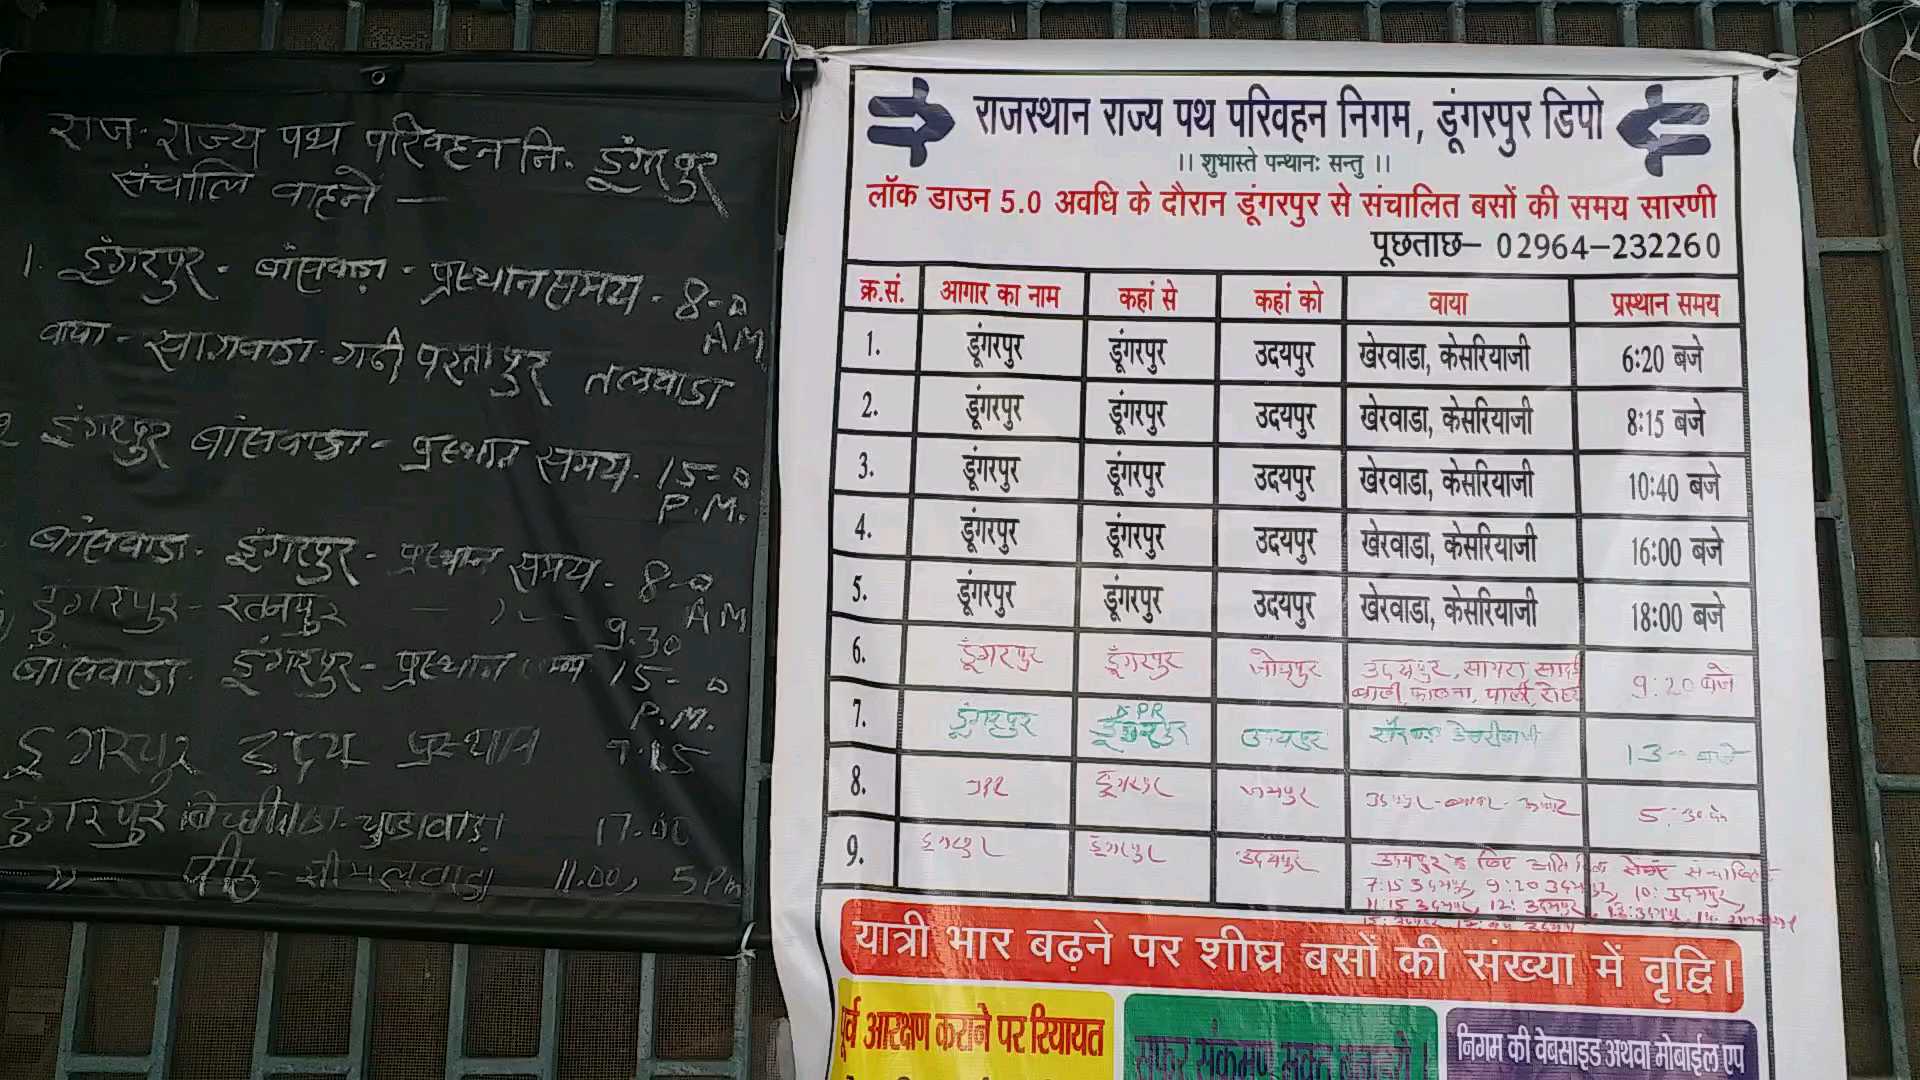 राज. राज्य पथ परिवहन नि. डूंगरपुर
संचालि वाहने —
1. डूंगरपुर - बांसवाडा - प्रस्थान समय - 8-0
AM
वाया - सागवाडा - गढी परतापुर तलवाडा
2 डूंगरपुर बांसवाडा - प्रस्थान समय - 15-0
P.M.
बांसवाडा - डूंगरपुर - प्रस्थान समय - 8-0
AM
डूंगरपुर - रतनपुर 9.30
बांसवाडा - डूंगरपुर - प्रस्थान 15-0
P.M.
डूंगरपुर उदय प्रस्थान 7.15
डूंगरपुर चुण्डावाडा 17.00
पीठ - सीमलवाडा 11.00, 5 Pm
राजस्थान राज्य पथ परिवहन निगम, डूंगरपुर डिपो
।। शुभास्ते पन्थानः सन्तु ।।
लॉक डाउन 5.0 अवधि के दौरान डूंगरपुर से संचालित बसों की समय सारणी
पूछताछ– 02964–232260
क्र.सं. आगार का नाम कहां से कहां को वाया प्रस्थान समय
1. डूंगरपुर डूंगरपुर उदयपुर खेरवाडा, केसरियाजी 6:20 बजे
2. डूंगरपुर डूंगरपुर उदयपुर खेरवाडा, केसरियाजी 8:15 बजे
3. डूंगरपुर डूंगरपुर उदयपुर खेरवाडा, केसरियाजी 10:40 बजे
4. डूंगरपुर डूंगरपुर उदयपुर खेरवाडा, केसरियाजी 16:00 बजे
5. डूंगरपुर डूंगरपुर उदयपुर खेरवाडा, केसरियाजी 18:00 बजे
6. डूंगरपुर डूंगरपुर जोधपुर उदयपुर, सायरा सादडी 9:20 बजे
बाली, फालना, पाली, रोहट
7. डूंगरपुर DPR डूंगरपुर उदयपुर 13 बजे
8. डूंगरपुर जयपुर 5:30
9. डूंगरपुर डूंगरपुर उदयपुर उदयपुर के लिए
7:15 उदयपुर, 9:20 उदयपुर, 10: उदयपुर,
11:15 उदयपुर, 12: उदयपुर, 13: उदयपुर
यात्री भार बढ़ने पर शीघ्र बसों की संख्या में वृद्वि।
पूर्व आरक्षण कराने पर रियायत
सफर संक्रमण मुक्त बनाये।
निगम की वेबसाइड अथवा मोबाईल एप